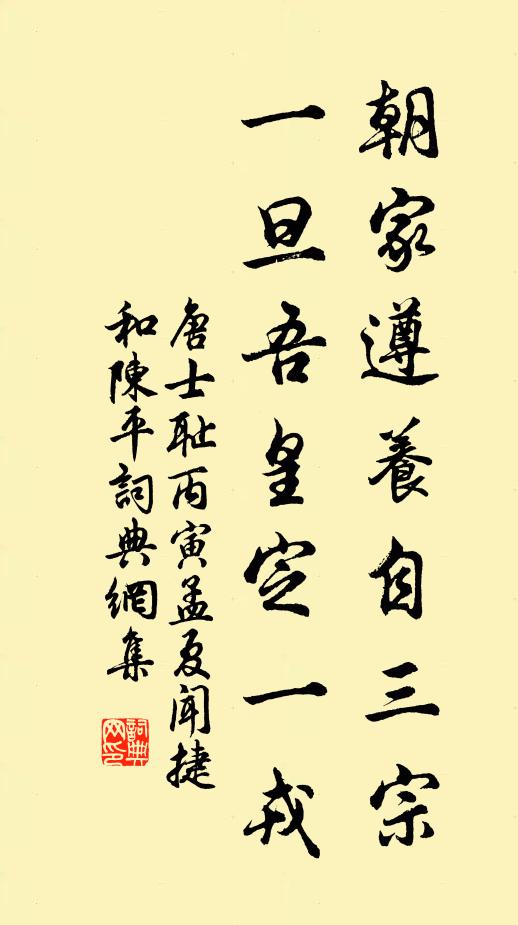 朝家遵養自三宗
一旦吾皇定一戎
唐士耻丙寅孟夏闻捷
和陳平詞典網集
詞典网印